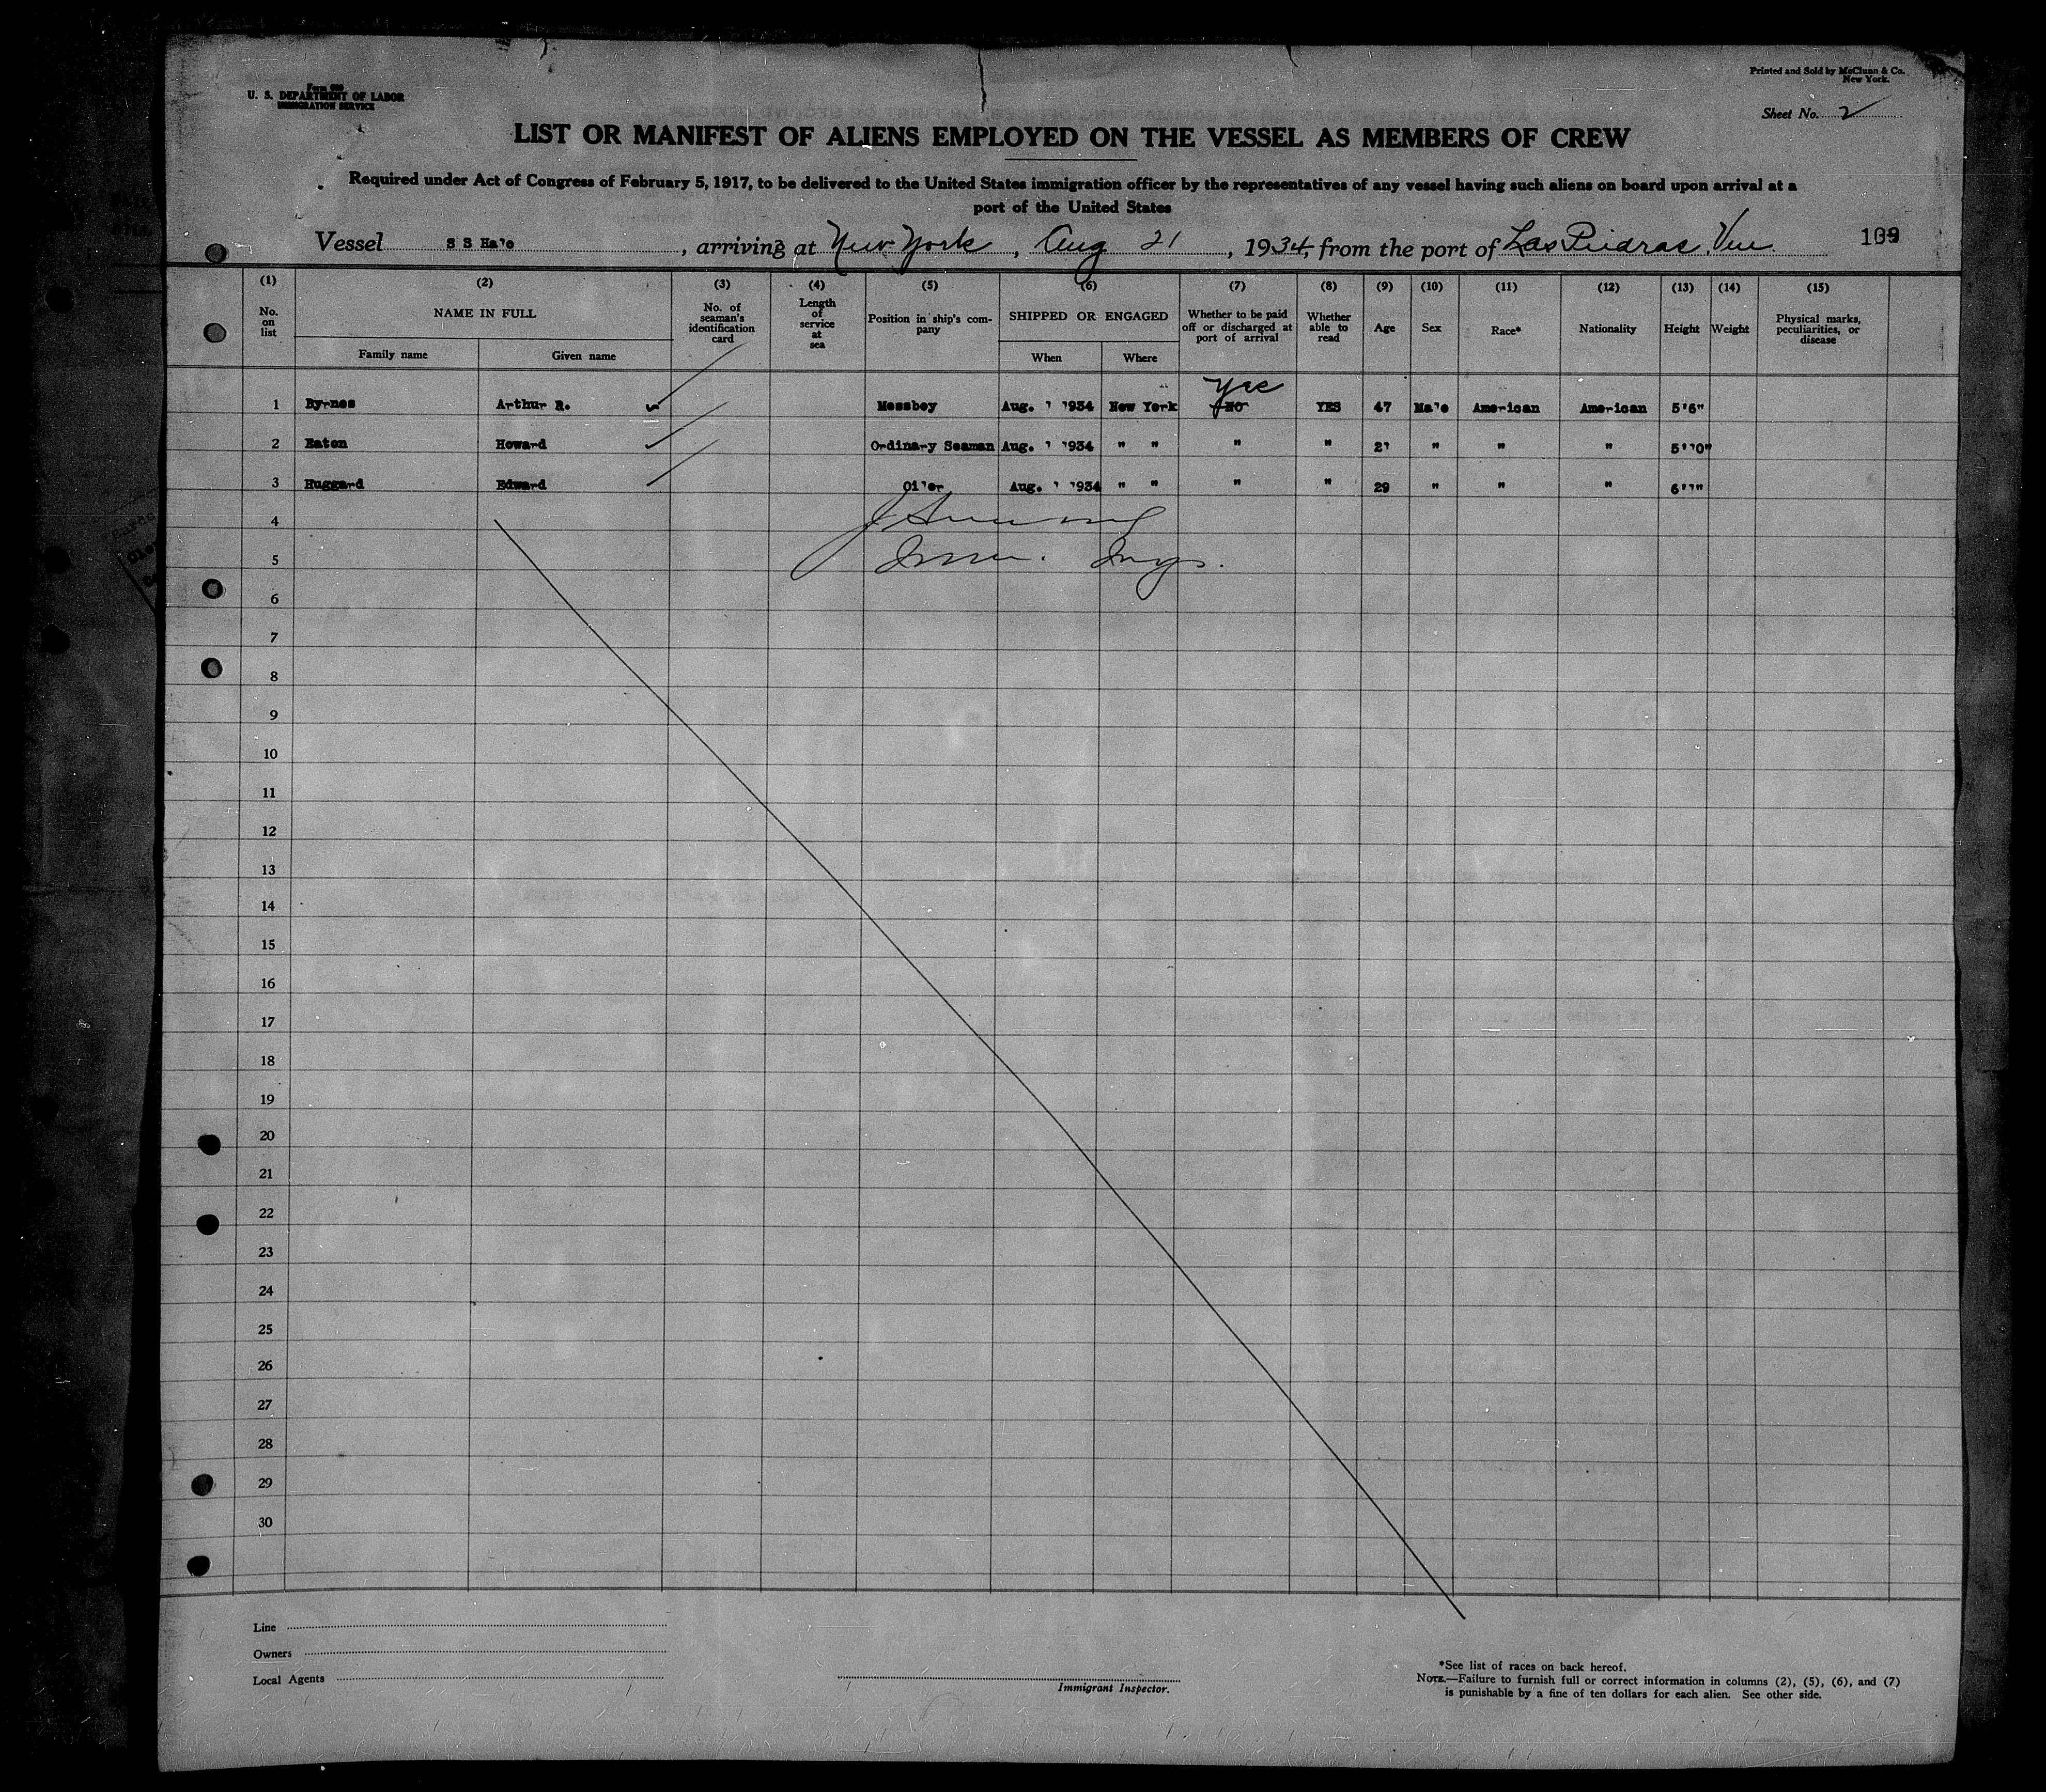 Form 680
U. S. DEPARTMENT OF LABOR
IMMIGRATION SERVICE
Printed and Sold by McClunn & Co.
New York.
Sheet No. 2
LIST OR MANIFEST OF ALIENS EMPLOYED ON THE VESSEL AS MEMBERS OF CREW
Required under Act of Congress of February 5, 1917, to be delivered to the United States immigration officer by the representatives of any vessel having such aliens on board upon arrival at a
port of the United States
Vessel S S Halo, arriving at New York, Aug 21, 1934, from the port of Las Piedras, Ven. 109
(1) (2) (3) (4) (5) (6) (7) (8) (9) (10) (11) (12) (13) (14) (15)
No. on list NAME IN FULL No. of seaman's identification card Length of service at sea Position in ship's company SHIPPED OR ENGAGED Whether to be paid off or discharged at port of arrival Whether able to read Age Sex Race* Nationality Height Weight Physical marks, peculiarities, or disease
Family name Given name When Where
Yes
1 Byrnes Arthur R. Messboy Aug. 1 1934 New York NO YES 47 Male American American 5'6"
2 Eaton Howard Ordinary Seaman Aug. 1 1934 " " " " 21 " " " 5'10"
3 Huggard Edward Oiler Aug. 1 1934 " " " " 29 " " " 6'1"
4
5 Imm. Insp.
6
7
8
9
10
11
12
13
14
15
16
17
18
19
20
21
22
23
24
25
26
27
28
29
30
Line
Owners
Local Agents
Immigrant Inspector.
*See list of races on back hereof.
NOTE.—Failure to furnish full or correct information in columns (2), (5), (6), and (7)
is punishable by a fine of ten dollars for each alien. See other side.